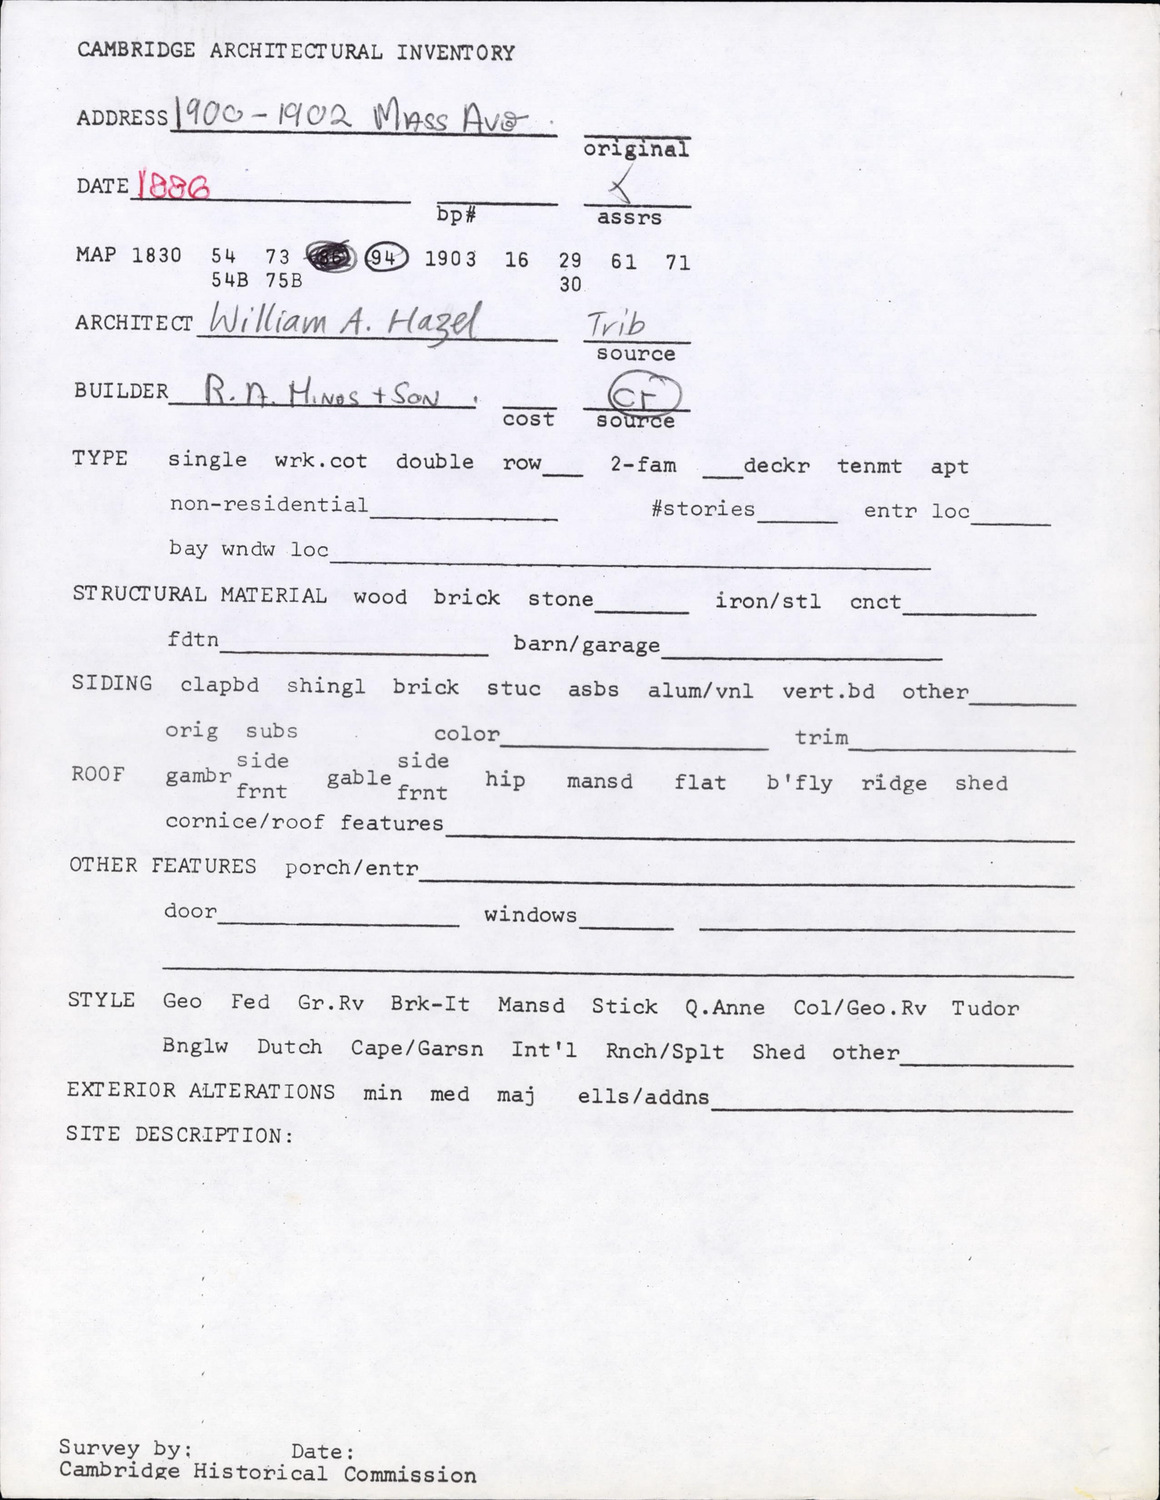 CAMBRIDGE ARCHITECTURAL INVENTORY
ADDRESS 1900-1902 Mass Ave. original
DATE 1886 bp# assrs
MAP 1830 54 73 86 94 1903 16 29 61 71
54B 75B 30
ARCHITECT William A. Hazel Trib source
BUILDER R. A. Hinds + Son cost CF source
TYPE single wrk.cot double row___ 2-fam ___deckr tenmt apt
non-residential____ #stories____ entr loc____
bay wndw loc____
STRUCTURAL MATERIAL wood brick stone____ iron/stl cnct____
fdtn____ barn/garage____
SIDING clapbd shingl brick stuc asbs alum/vnl vert.bd other____
orig subs color____ trim____
side side
ROOF gambr gable hip mansd flat b'fly ridge shed
frnt frnt
cornice/roof features____
OTHER FEATURES porch/entr____
door____ windows____
STYLE Geo Fed Gr.Rv Brk-It Mansd Stick Q.Anne Col/Geo.Rv Tudor
Bnglw Dutch Cape/Garsn Int'l Rnch/Splt Shed other____
EXTERIOR ALTERATIONS min med maj ells/addns____
SITE DESCRIPTION:
Survey by: Date:
Cambridge Historical Commission